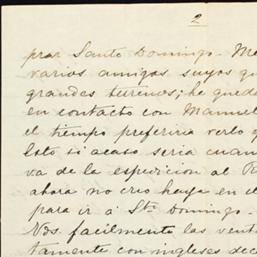 2
prar Santo Domingo. Me
varios amigos suyos qu
grandes terrenos; he queda
en contacto con Manuel
el tiempo preferiria verlo q
Esto si acaso seria cuan
va de la espedicion al R
ahora no creo haya en el
para ir á Sto Domingo.
Nos. facilmente las vent
tamente con ingleses dec